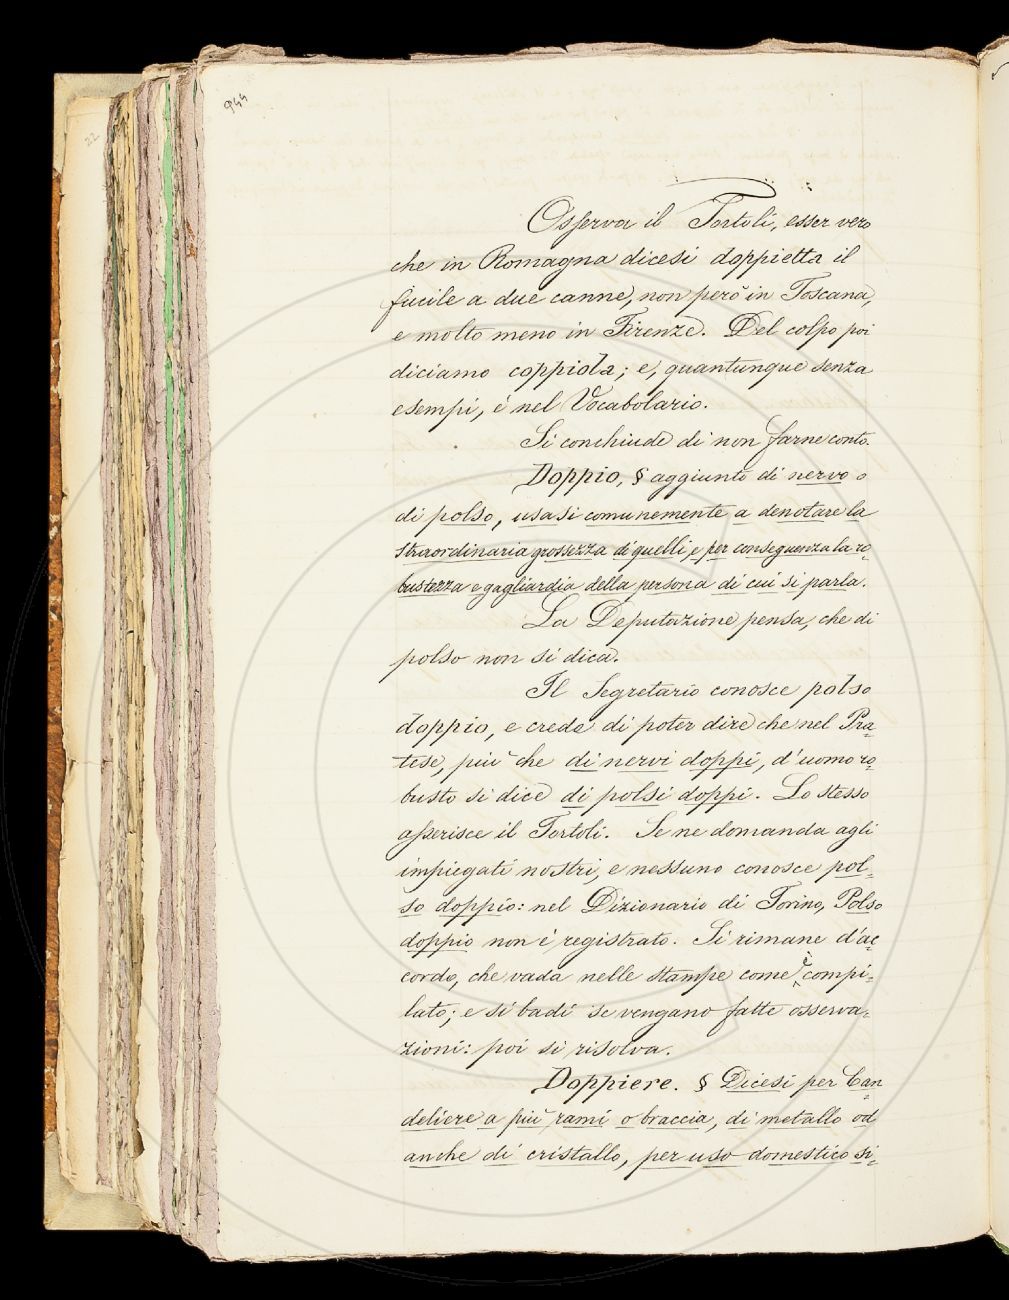 944
22
Osserva il Tortoli, esser vero
che in Romagna dicesi doppietta il
fucile a due canne, non però in Toscana,
e molto meno in Firenze. Del colpo poi
diciamo coppiola; e, quantunque senza
esempi, è nel Vocabolario.
Si conchiude di non farne conto.
Doppio, § aggiunto di nervo o
di polso, usasi comunemente a denotare la
straordinaria grossezza di quelli, e per conseguenza la ro-
bustezza e gagliardia della persona di cui si parla.
La Deputazione pensa, che di
polso non si dica.
Il Segretario conosce polso
doppio, e crede di poter dire che nel Pra-
tese, più che di nervi doppi, d'uomo ro-
busto si dice di polsi doppi. Lo stesso
asserisce il Tortoli. Se ne domanda agli
impiegati nostri, e nessuno conosce pol-
so doppio: nel Dizionario di Torino, Polso
doppio non è registrato. Si rimane d'ac-
cordo, che vada nelle stampe come è compi-
lato; e si badi se vengano fatte osserva-
zioni: poi si risolva.
Doppiere. § Dicesi per Can-
deliere a più rami o braccia, di metallo od
anche di cristallo, per uso domestico si-